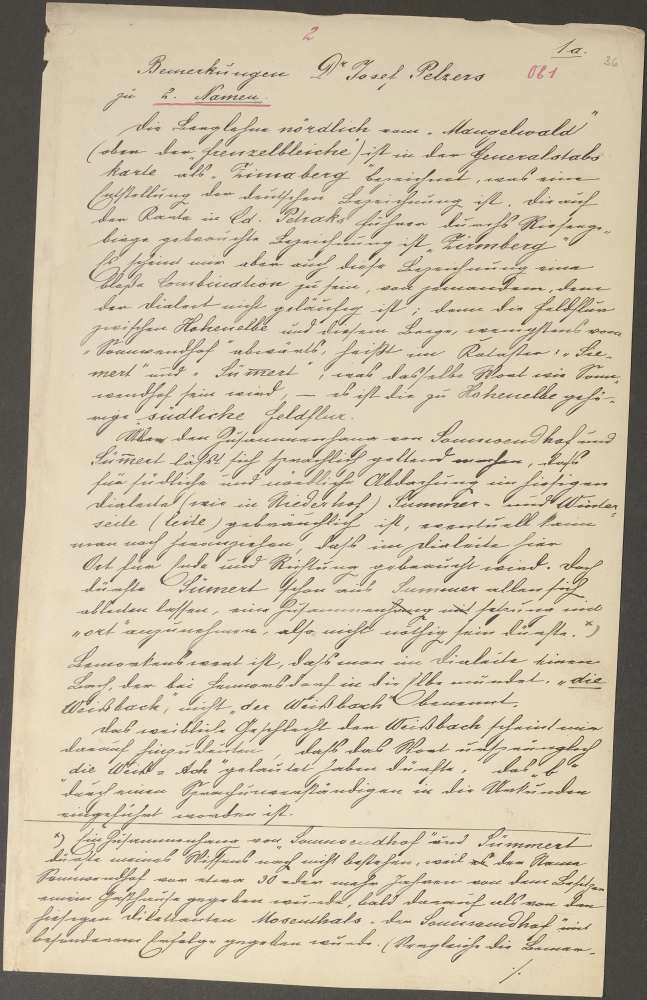 2
1a.
36
Bemerkungen Dr Josef Pelzers
061
zu 2. Namen.
Die Berglehne nördlich vom „Mangelwald"
(ober der „Frenzelbleiche") ist in der Generalstabs
karte als „Zimaberg" bezeichnet, was eine
Entstellung der deutschen Bezeichnung ist. Die auf
der Karte in Ed. Petraks Führer durchs Riesenge-
birge gebrauchte Bezeichnung ist „Zirmberg"
Es scheint mir aber auch diese Bezeichnung eine
bloße Combination zu sein, von jemandem, dem
der Dialect nicht geläufig ist; denn die Feldflur
zwischen Hohenelbe und diesem Berge, wenigstens vom
„Sonnwendhof" abwärts, heißt im Kataster: „See-
mert" und „Sümmert", was dasselbe Wort wie Sonn-
wendhof sein wird, – es ist die zu Hohenelbe gehö-
rige südliche Feldflur.
Über den Zusammenhang von Sonnwendhof und
Sümmert läßt sich sprachlich geltend machen, daß
für südliche und nördliche Abdachung im hiesigen
Dialecte (wie in Niederhof) Summer- und Winter-
seite (leite) gebräuchlich ist, eventuell kann
man noch heranziehen, daß im Dialecte hier
Ort für Ende und Richtung gebraucht wird. Doch
dürfte Sümert schon aus Summer allein sich
ableiten lassen, eine Zusammenhang mit setzung mit
„ort" anzunehmen, also nicht nöthig sein dürfte. *)
Bemerkenswert ist, daß man im Dialecte einen
Bach, der bei Hennersdorf in die Elbe mündet, „die
Weißbach", nicht „der Weißbach" benennt.
Das weibliche Geschlecht der Weißbach scheint mir
darauf hinzudeuten, daß das Wort ursprünglich
die Weiß-Ach" gelautet haben dürfte, das „b"
durch einen Sprachunverständigen in die Urkunden
eingeführt worden ist.
*) Ein Zusammenhang von „Sonnwendhof" und Sümmert
dürfte meines Wissens nach nicht bestehen, weil es der Name
Sonnwendhof vor etwa 30 oder mehr Jahren von dem Besitzer
einem Gasthause gegeben wurde, bald darauf als von den
hiesigen Dilettanten Mosenthals „der Sonnwendhof" mit
besonderem Erfolge gegeben wurde. (Vergleiche die Bemer-
./.